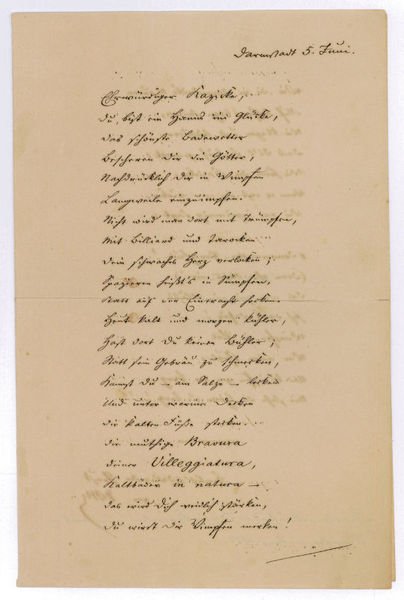 Darmstadt 5. Juni.
Ehrwürdiger Kazike,
du bist ein Hanns im Glücke,
das schönste Badewetter
Bescheren Dir die Götter,
Nachdrücklich Dir in Wimpfen
Langeweile einzuimpfen.
Nicht wird man dort mit Trümpfen,
Mit Billiard und Tarocken
Dein schwaches Herz verlocken;
Spazieren heißt's in Sümpfen,
Statt auf der Eintracht hocken.
Heut kalt und morgen kühler,
Hast dort Du keinen Bühler;
Statt sein Gebräu zu schmecken,
Kannst Du – am Salze – lecken
Und unter warme Decken
die kalten Füße stecken.
die muthige Bravura
deiner Villeggiatura,
Kaltbäder in natura –
das wird Dich redlich stärken,
du wirst Dir Wimpfen merken!